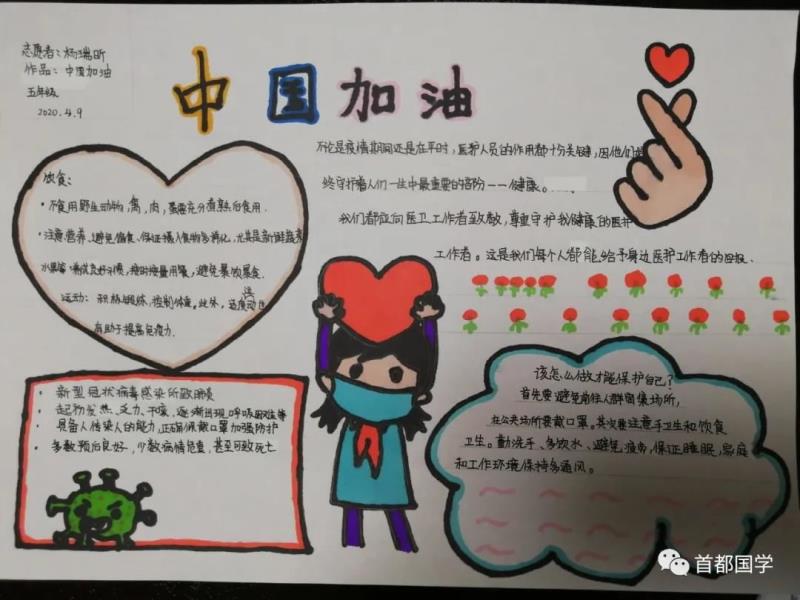 志愿者：杨瑞昕
作品：中国加油
五年级
2020.4.9
中国加油
不论是疫情期间还是在平时，医护人员的作用都十分关键，因他们始
终守护着人们一生中最重要的部分——健康。
我们都应向医卫工作者致敬，尊重守护我健康的医护
工作者。这是我们每个人都能给予身边医护工作者的回报.
饮食：
·不食用野生动物，禽，肉，蛋需充分煮熟后食用.
·注意营养，避免偏食、保证摄入食物多样化，尤其是新鲜蔬菜
水果等 养成良好习惯，按时按量用餐，避免暴饮暴食.
运动：积极锻炼，控制体重。此外，适度活动也
有助于提高免疫力.
·新型冠状病毒感染所致肺炎
·起初发热、乏力、干咳，逐渐出现呼吸困难等
·具备人传染人的能力，正确佩戴口罩加强防护
·多数预后良好，少数病情危重，甚至可致死亡
该怎么做才能保护自己？
首先要避免前往人群密集场所，
在公共场所要戴口罩。其次要注意手卫生和饮食
卫生。勤洗手、多饮水、避免疲劳，保证睡眠，家庭
和工作环境保持多通风。
首都国学